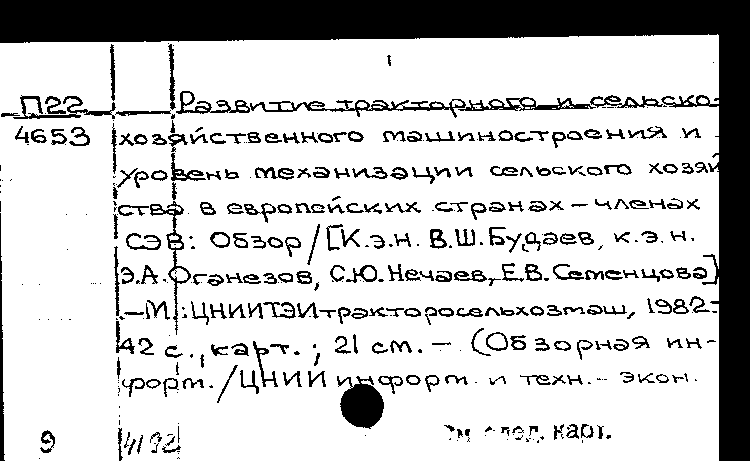 П22 Развитие тракторного и сельско-
4653 хозяйственного машиностроения и
уровень механизации сельского хозяй
ства в европейских странах – членах
СЭВ: Обзор / [К.э.н. В.Ш. Будаев, к.э.н.
Э.А. Оганезов, С.Ю. Нечаев, Е.В. Семенцова]
.–М.: ЦНИИТЭИтракторосельхозмаш, 1982.–
42 с., карт. ; 21 см. – (Обзорная ин-
форм. / ЦНИИ информ. и техн.- экон.
9 4192 След. карт.